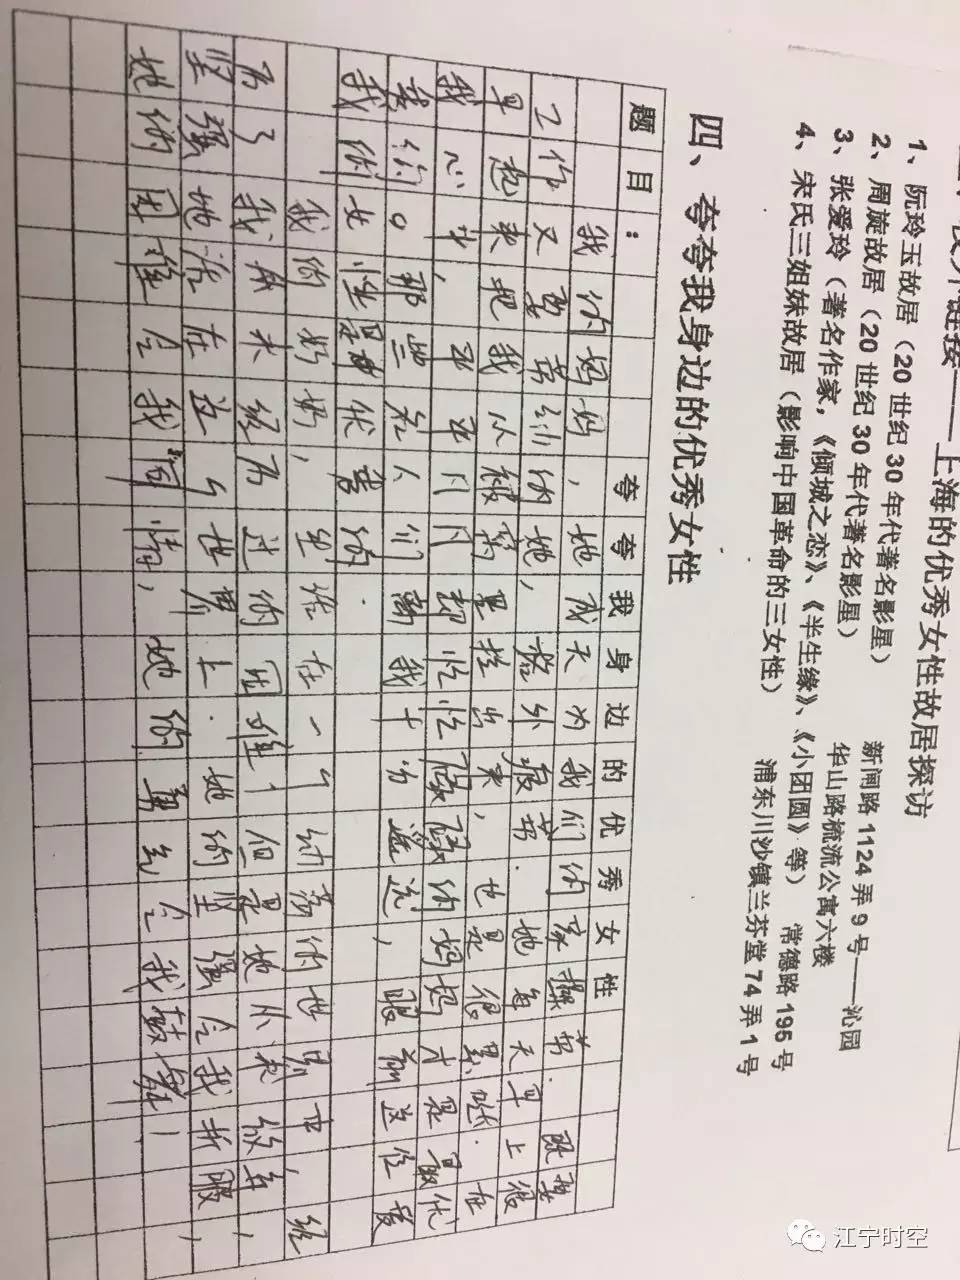 校外链接——上海的优秀女性故居探访
1、阮玲玉故居（20世纪30年代著名影星） 新闸路1124弄9号——沁园
2、周旋故居（20世纪30年代著名影星） 华山路梳流公寓六楼
3、张爱玲（著名作家，《倾城之恋》、《半生缘》、《小团圆》等） 常德路195号
4、宋氏三姐妹故居（影响中国革命的三女性） 浦东川沙镇兰芬堂74弄1号
四、夸夸我身边的优秀女性
题目： 夸夸我身边的优秀女性
我的妈妈，她成天为我们的家操劳.既要
工作又要 的她，格外疲劳.她每天早上很
早起来把我从被窝里拉出来，也是很累哒.在
我心中，平平凡凡却忙忙碌碌的妈妈才是最优
秀的。那些名人们离我十分遥远，眼前这位爱
我的女性是最优秀的.
我的奶奶，生活在一个动荡的世界中，经
历了我从未经历过的困难，但是她从不放弃，
坚强地活在这个世界上.她的坚强令我折服，
她的困难令我同情，她的勇气令我鼓舞！
江宁时空